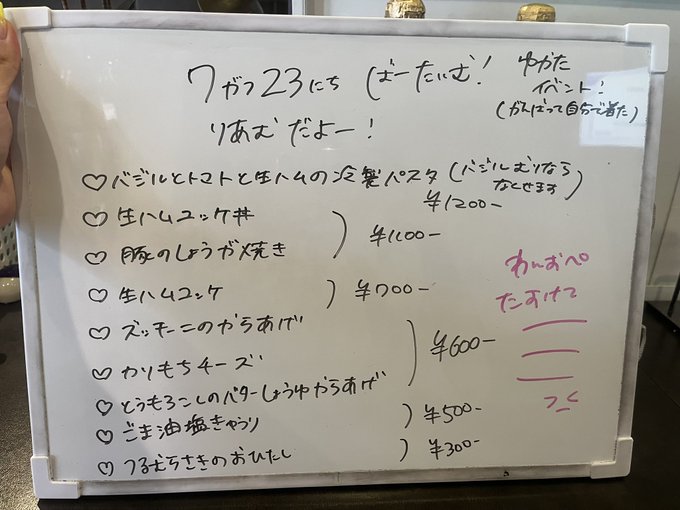 7がつ23にち ばーたいむ!
ゆかた
イベント!
(がんばって自分で着た)
りあむだよー!
♡バジルとトマトと生ハムの冷製パスタ(バジルむりなら
なくせます)
¥1200-
♡生ハムユッケ丼
♡豚のしょうが焼き
¥1100-
♡生ハムユッケ
¥700-
♡ズッキーニのからあげ
♡カリもちチーズ
♡とうもろこしのバターしょうゆからあげ
¥600-
♡ごま油塩きゅうり
¥500-
♡つるむらさきのおひたし
¥300-
わんおぺ
たすけて